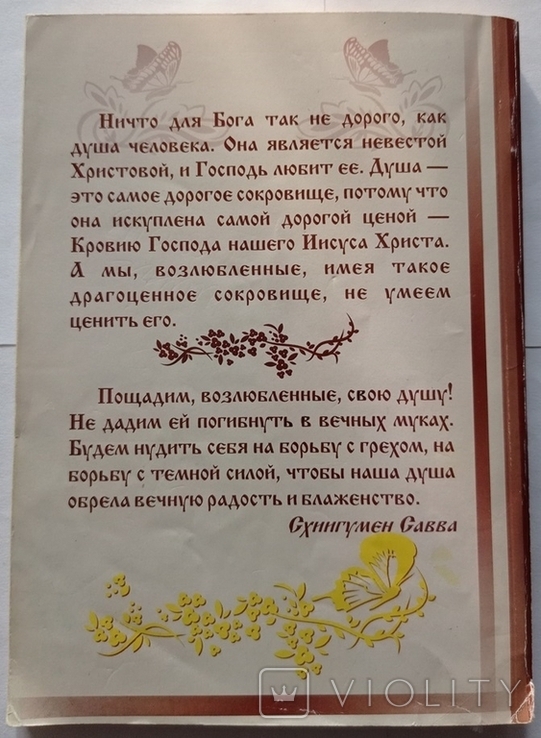 Ничто для Бога так не дорого, как
душа человека. Она является невестой
Христовой, и Господь любит ее. Душа —
это самое дорогое сокровище, потому что
она искуплена самой дорогой ценой —
Кровию Господа нашего Иисуса Христа.
А мы, возлюбленные, имея такое
драгоценное сокровище, не умеем
ценить его.
Пощадим, возлюбленные, свою душу!
Не дадим ей погибнуть в вечных муках.
Будем нудить себя на борьбу с грехом, на
борьбу с темной силой, чтобы наша душа
обрела вечную радость и блаженство.
Схиигумен Савва
VIOLITY